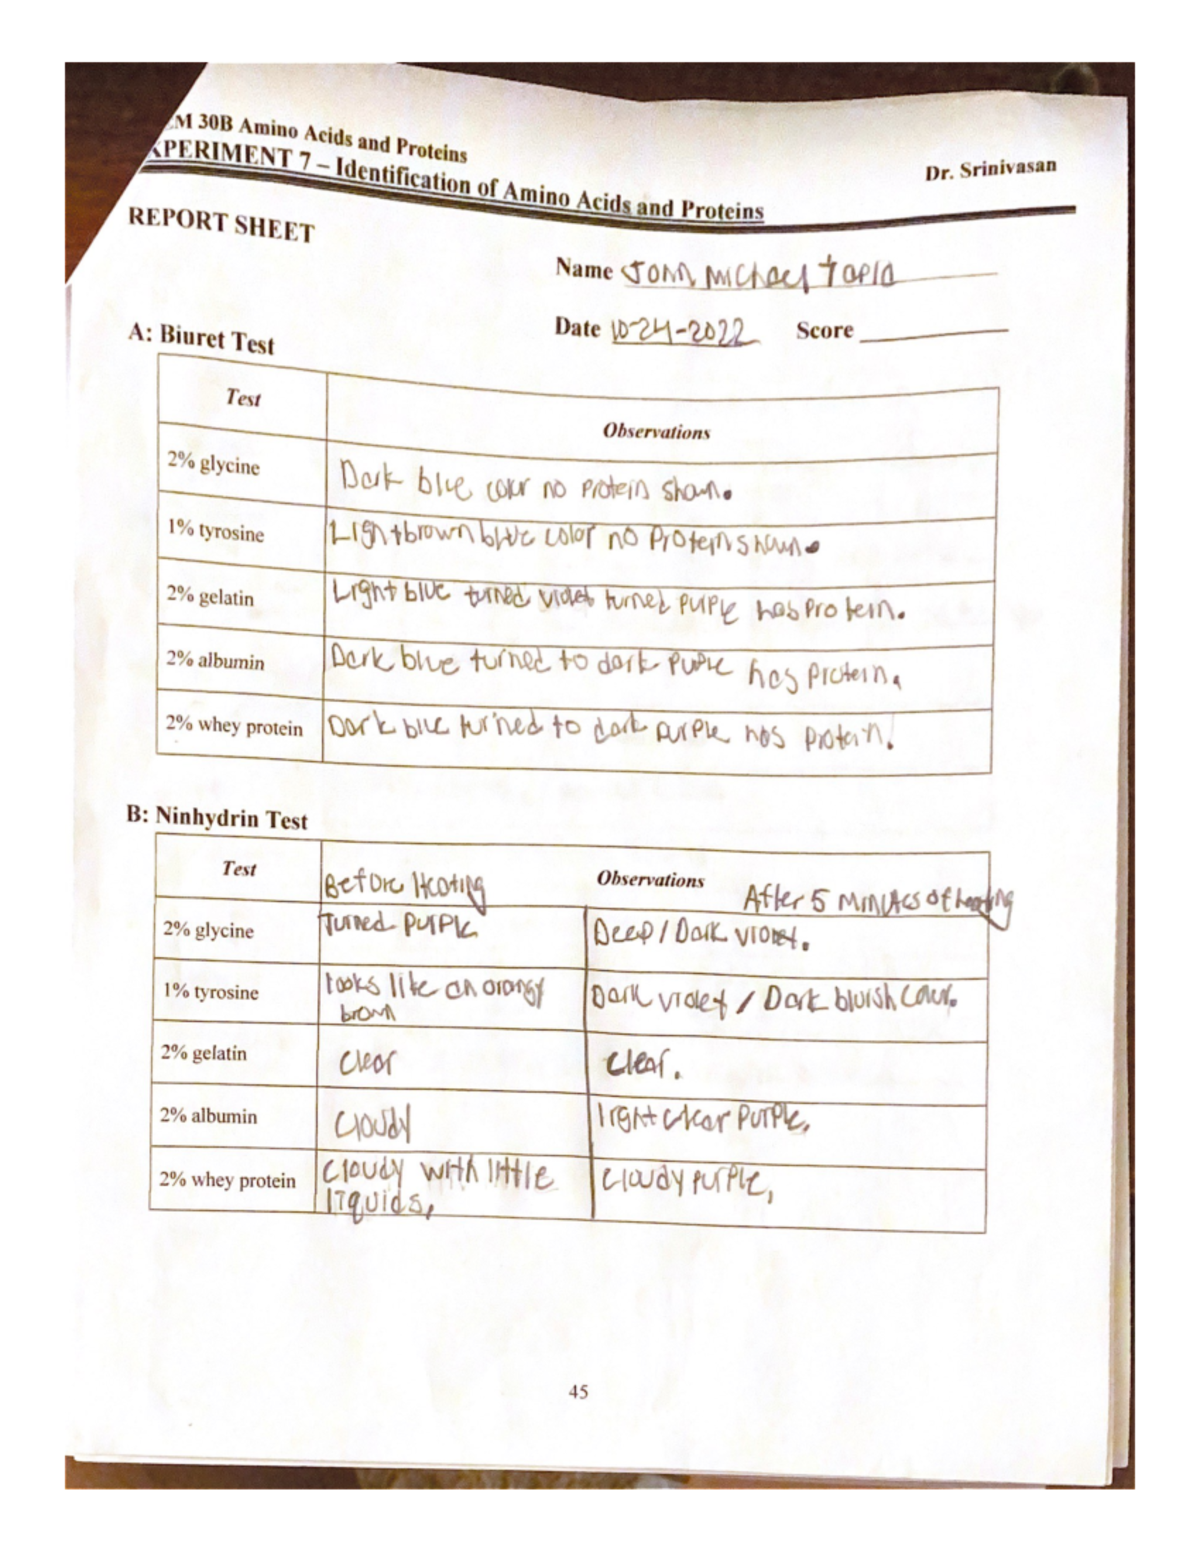 M 30B Amino Acids and Proteins
XPERIMENT 7 – Identification of Amino Acids and Proteins
Dr. Srinivasan
REPORT SHEET
Name John Michael Tapia
Date 10-24-2022 Score
A: Biuret Test
Test Observations
2% glycine Dark blue colur no protein shown.
1% tyrosine Light brown blue color no Protein shown.
2% gelatin Light blue turned violet turned purple has protein.
2% albumin Dark blue turned to dark purple has protein.
2% whey protein Dark blue turned to dark purple has protein.
B: Ninhydrin Test
Test Before Heating Observations After 5 minutes of heating
2% glycine Turned purple Deep / Dark violet.
1% tyrosine looks like an orangy Dark violet / Dark bluish colur.
brown
2% gelatin clear clear.
2% albumin cloudy light clear purple.
2% whey protein cloudy with little cloudy purple,
liquids,
45